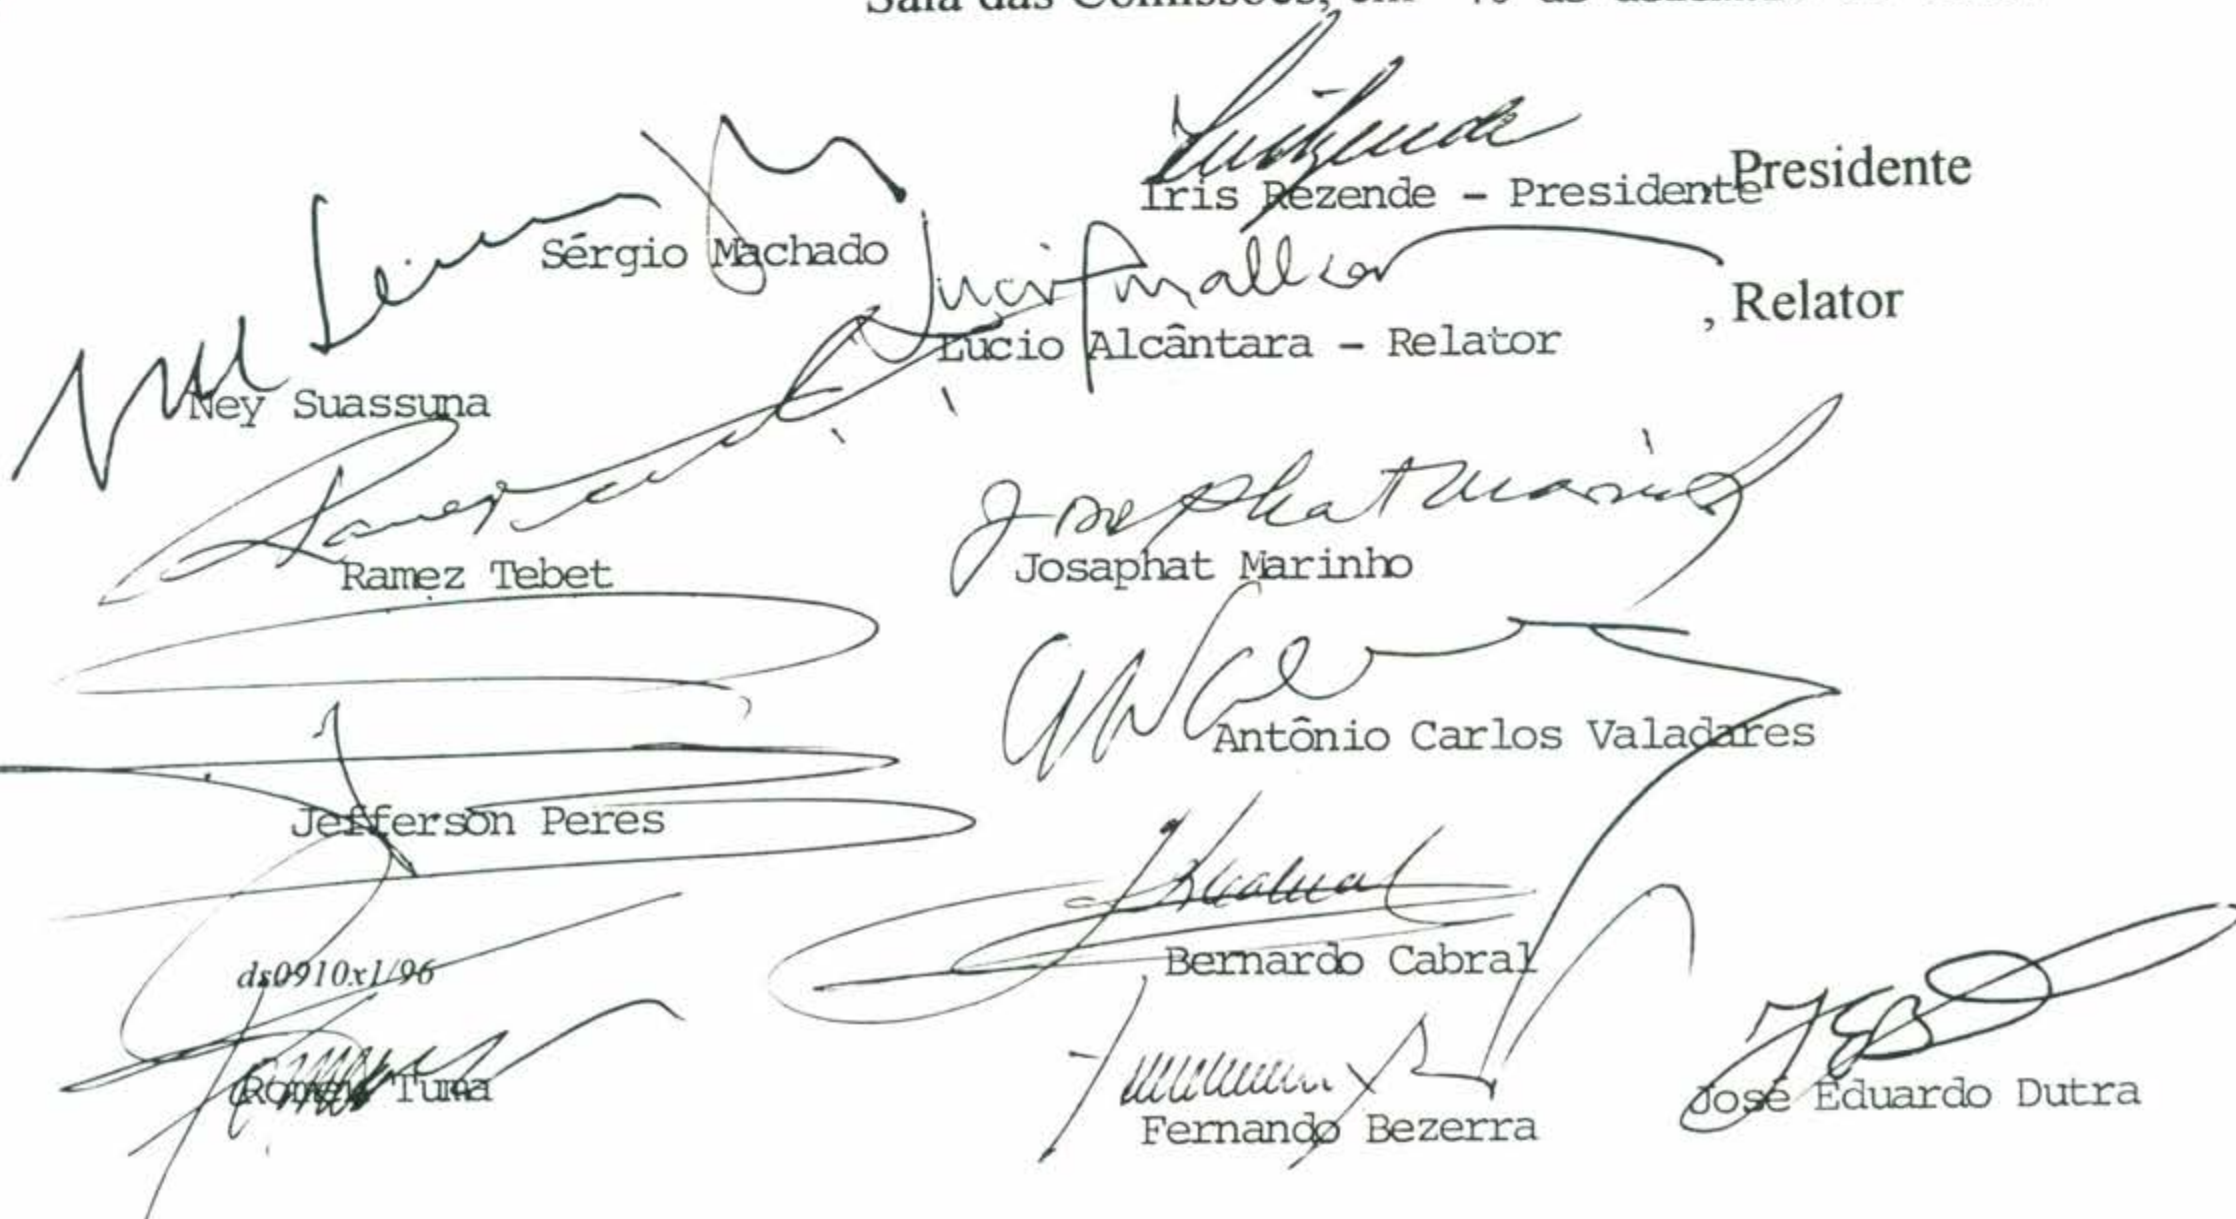 Sala das Comissões, em
Iris Rezende - Presidente , Presidente
Sérgio Machado
Lúcio Alcântara - Relator , Relator
Ney Suassuna
Ramez Tebet
Josaphat Marinho
Antônio Carlos Valadares
Jefferson Peres
Bernardo Cabral
ds0910x1/96
Romeu Tuma
José Eduardo Dutra
Fernando Bezerra